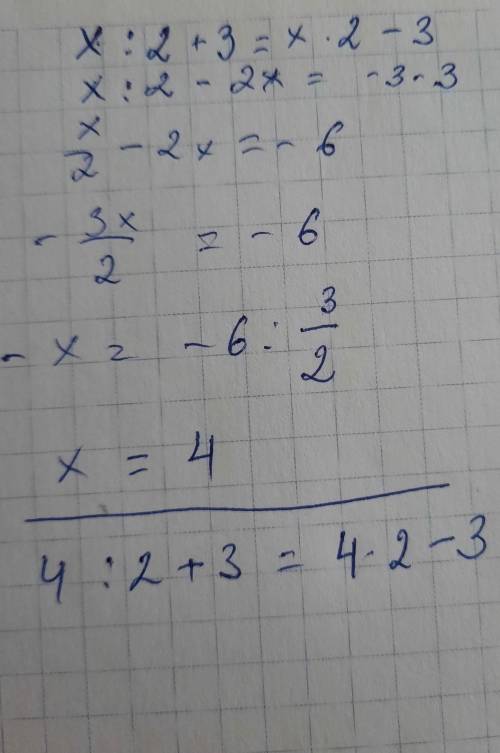 x : 2 + 3 = x · 2 - 3
x : 2 - 2x = -3 - 3
x/2 - 2x = - 6
- 3x/2 = - 6
- x = - 6 : 3/2
x = 4
4 : 2 + 3 = 4 · 2 - 3